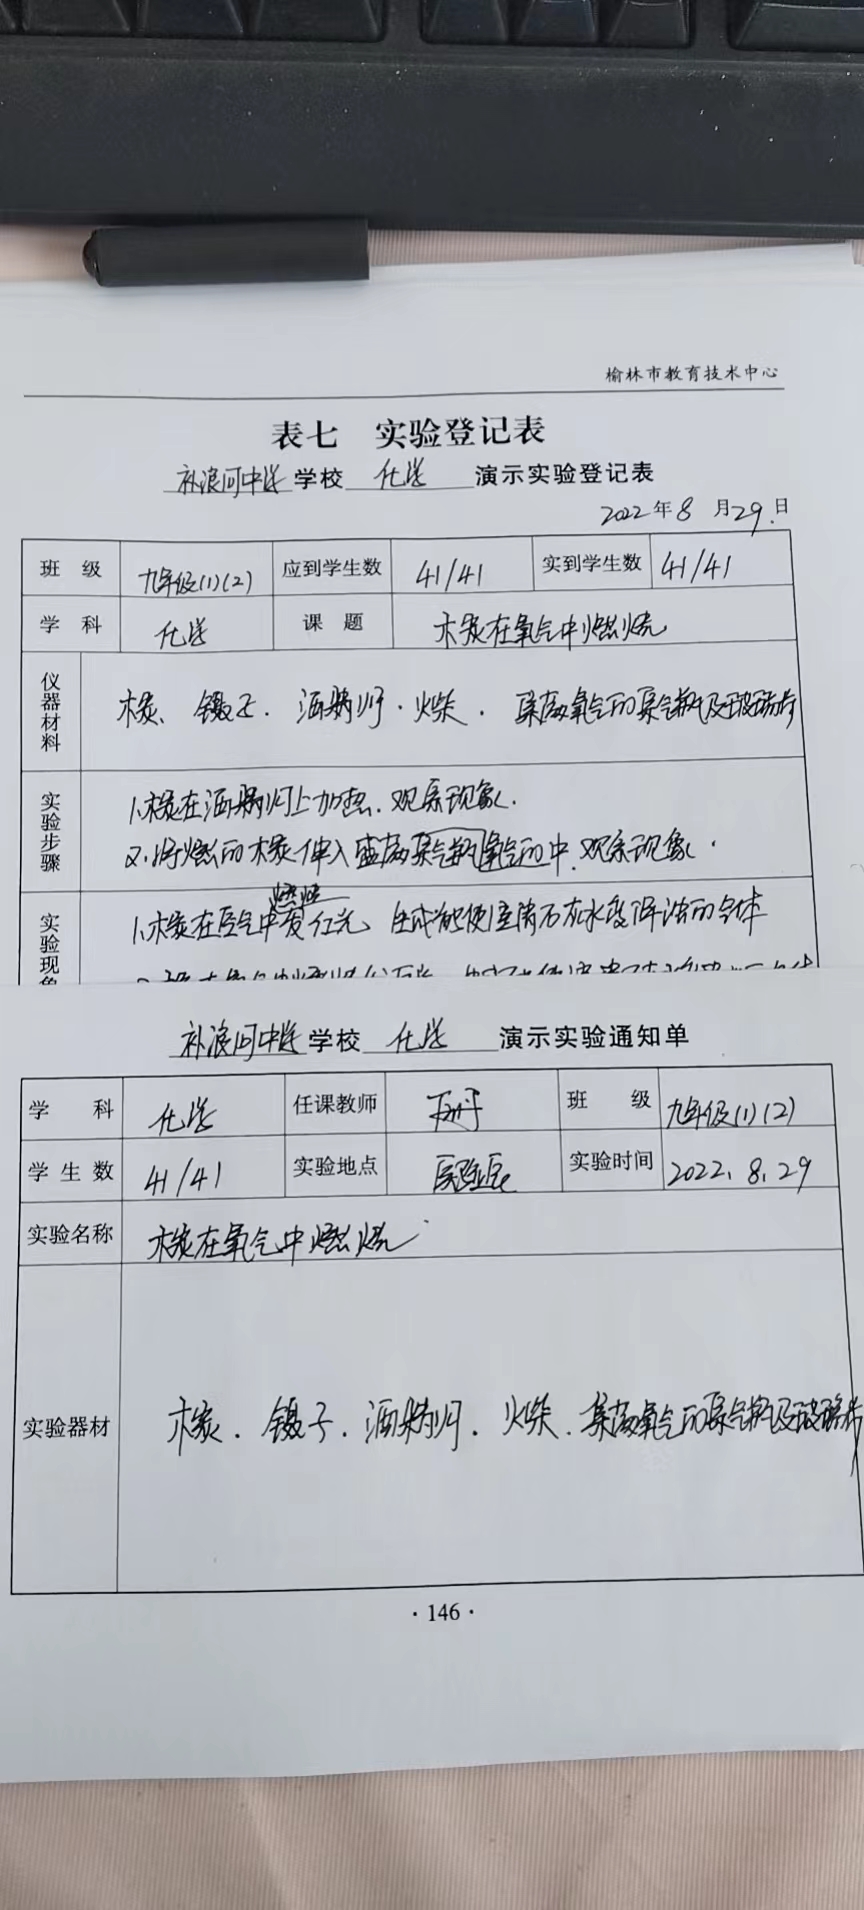 榆林市教育技术中心
表七 实验登记表
补浪河中学学校 化学 演示实验登记表
2022年8月29日
班级 九年级(1)(2) 应到学生数 41/41 实到学生数 41/41
学科 化学 课题 木炭在氧气中燃烧
仪器材料 木炭、镊子、酒精灯、火柴、集满氧气的集气瓶及玻璃片
实验步骤 1.木炭在酒精灯上加热,观察现象.
2.将燃的木炭伸入盛满集气瓶氧气的中,观察现象.
燃烧
实验现象 1.木炭在空气中发红光、生成能使澄清石灰水变浑浊的气体
补浪河中学学校 化学 演示实验通知单
学科 化学 任课教师 班级 九年级(1)(2)
学生数 41/41 实验地点 实验室 实验时间 2022.8.29
实验名称 木炭在氧气中燃烧
实验器材 木炭、镊子、酒精灯、火柴、集满氧气的集气瓶及玻璃片
·146·